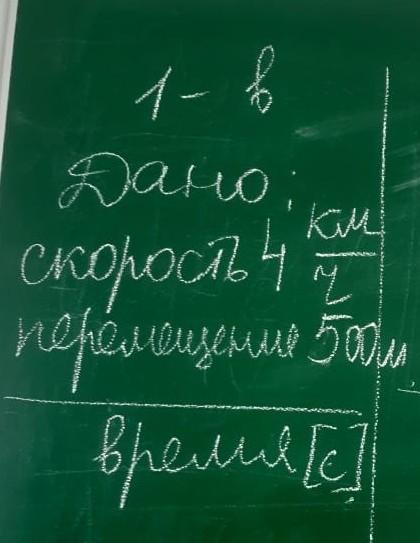 1 - в
Дано:
скорость 4 км/ч
перемещение 500м
время [с]